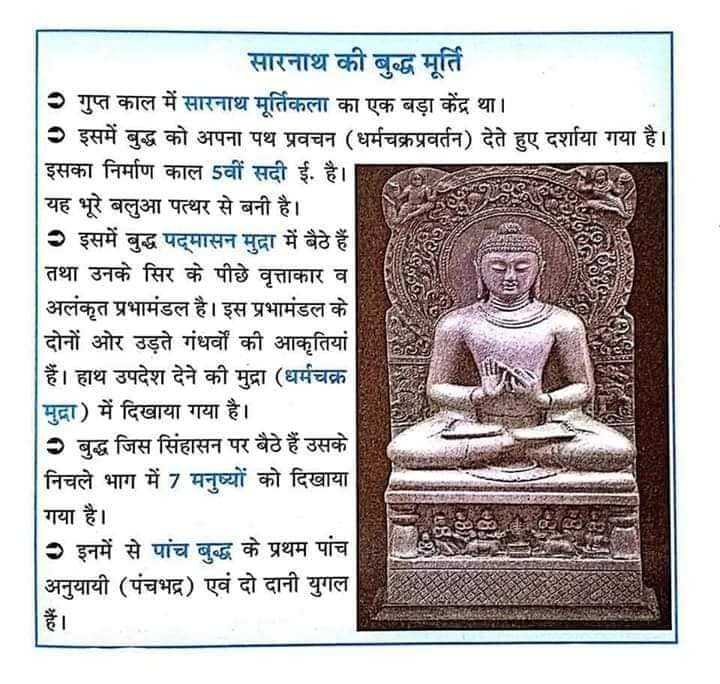 सारनाथ की बुद्ध मूर्ति
➲ गुप्त काल में सारनाथ मूर्तिकला का एक बड़ा केंद्र था।
➲ इसमें बुद्ध को अपना पथ प्रवचन (धर्मचक्रप्रवर्तन) देते हुए दर्शाया गया है।
इसका निर्माण काल 5वीं सदी ई. है।
यह भूरे बलुआ पत्थर से बनी है।
➲ इसमें बुद्ध पद्मासन मुद्रा में बैठे हैं
तथा उनके सिर के पीछे वृत्ताकार व
अलंकृत प्रभामंडल है। इस प्रभामंडल के
दोनों ओर उड़ते गंधर्वों की आकृतियां
हैं। हाथ उपदेश देने की मुद्रा (धर्मचक्र
मुद्रा) में दिखाया गया है।
➲ बुद्ध जिस सिंहासन पर बैठे हैं उसके
निचले भाग में 7 मनुष्यों को दिखाया
गया है।
➲ इनमें से पांच बुद्ध के प्रथम पांच
अनुयायी (पंचभद्र) एवं दो दानी युगल
हैं।